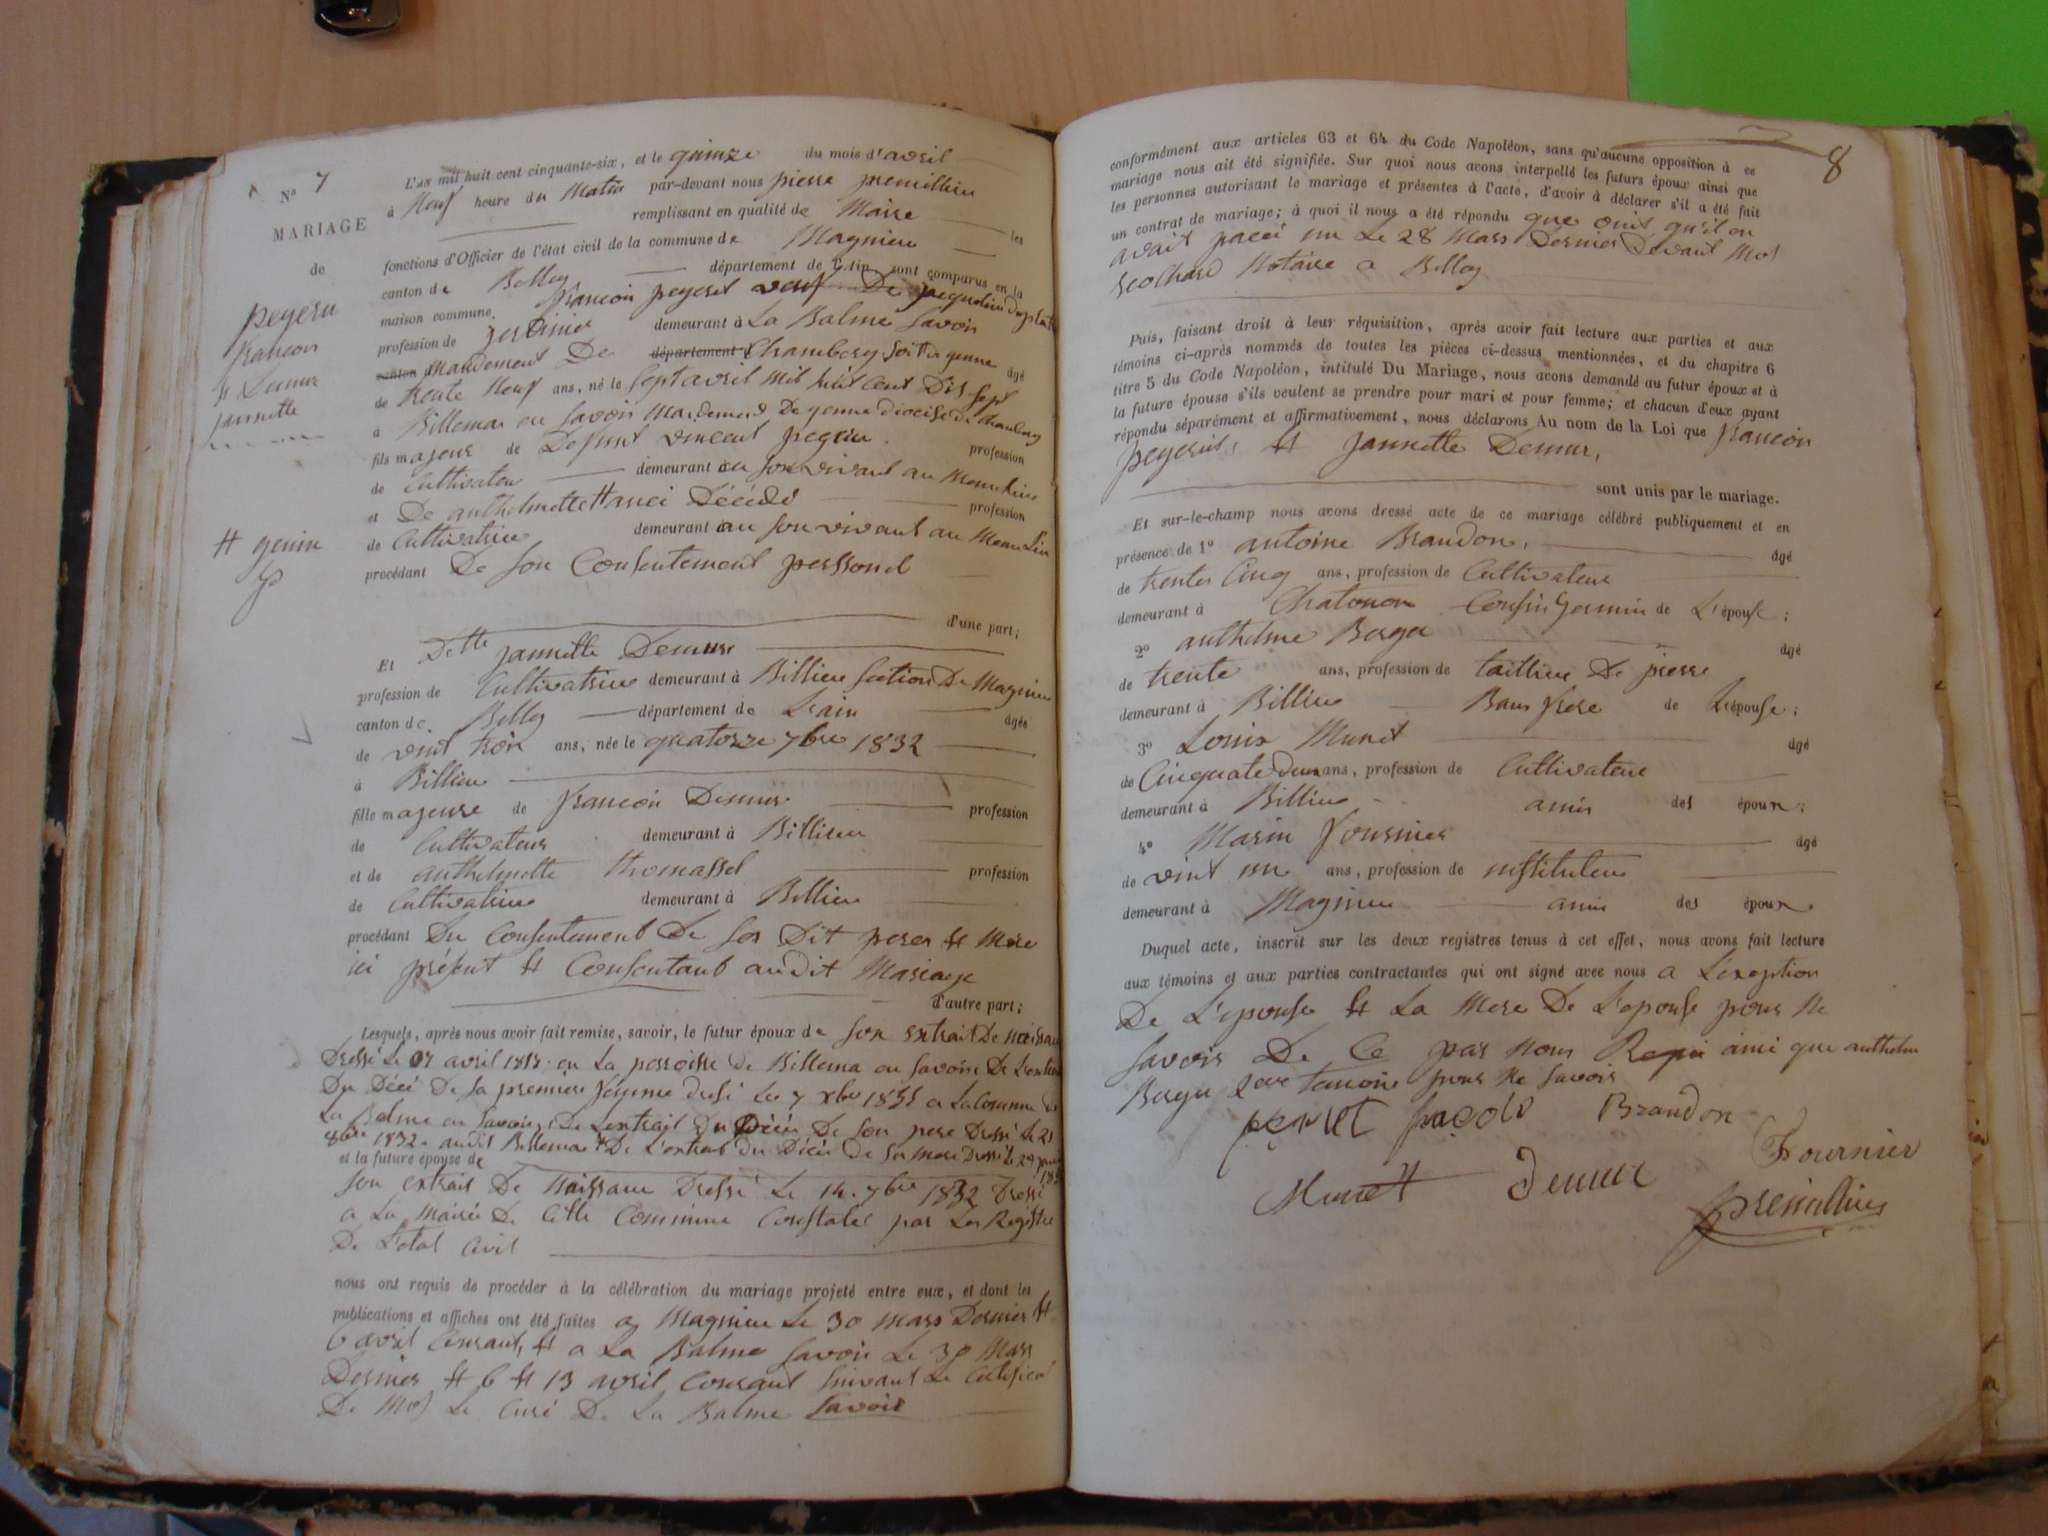 N° 7
MARIAGE
de
peyeru
francois
et Demur
jannette
# genin
L'an mil huit cent cinquante-six, et le quinze du mois d'avril
à Neuf heure du Matin par-devant nous pierre premillieu
remplissant en qualité de Maire les
fonctions d'Officier de l'état civil de la commune de Magnieu
canton de Belley département de l'Ain, sont comparus en la
maison commune francois peyeret veuf De jacqueline
profession de jardinier demeurant à La Balme Savoie
canton Mandement De département Chambery Soit De yenne âgé
de trente Neuf ans, né le sept avril mil huit cent Dix sept
à Billema en Savoie Mandement De yenne diocèse de Chambery
fils majeur de Defunt vincent profession
de Cultivateur demeurant en son vivant au
et De anthelmette # aussi Décédé profession
de Cultivatrice demeurant en son vivant au
procédant De son Consentement perssonel
d'une part;
Et Delle jannette Demur
profession de Cultivatrice demeurant à Billieu Section De Magnieu
canton de Belley département de Lain âgée
de vint trois ans, née le quatorze 7bre 1832
à Billieu
fille majeure de francois Demur profession
de Cultivateur demeurant à Billieu
et de anthelmette thomasset profession
de Cultivatrice demeurant à Billieu
procédant Du Consentement De ses Dit peres et Mere
ici présent et Consentant audit Mariage
d'autre part;
Lesquels, après nous avoir fait remise, savoir, le futur époux de son extrait De naissance
Dressé Le 07 avril 1817 en La paroisse de Billema en Savoie De L'extrait
Du Décé De sa premiere femme dressé Le 7 xbre 1855 a La Commune de
La Balme en Savoie, De Lextrait Du Décés De son pere Dressé Le 21
8bre 1832 audit Billema et De L'extrait du Décés de sa Mere Dressé Le 29
et la future épouse de
son extrait De Naissance Dressé Le 14 7bre 1832 Dressé
a La Mairie De Cette Commune Constatée par Les Registre
De L'état Civil
nous ont requis de procéder à la célébration du mariage projeté entre eux, et dont les
publications et affiches ont été faites a Magnieu Le 30 Mars Dernier et
6 avril Courant, et a La Balme Savoie Le 30 Mars
Dernier et 6 et 13 avril Courant suivant Le Certificat
De Mos Le Curé De La Balme Savoie
8
conformément aux articles 63 et 64 du Code Napoléon, sans qu'aucune opposition à ce
mariage nous ait été signifiée. Sur quoi nous avons interpellé les futurs époux ainsi que
les personnes autorisant le mariage et présentes à l'acte, d'avoir à déclarer s'il a été fait
un contrat de mariage; à quoi il nous a été répondu que ouit qu'il en
avait passé un Le 28 Mars Dernier Devant Mos
Notaire a Belley
Puis, faisant droit à leur réquisition, après avoir fait lecture aux parties et aux
témoins ci-après nommés de toutes les pièces ci-dessus mentionnées, et du chapitre 6
titre 5 du Code Napoléon, intitulé Du Mariage, nous avons demandé au futur époux et à
la future épouse s'ils veulent se prendre pour mari et pour femme; et chacun d'eux ayant
répondu séparément et affirmativement, nous déclarons Au nom de la Loi que francois
peyeret, et jannette Demur,
sont unis par le mariage.
Et sur-le-champ nous avons dressé acte de ce mariage célébré publiquement et en
présence de 1° antoine Brandon, âgé
de trente Cinq ans, profession de Cultivateur
demeurant à Chatonon Consin Germin de L'épouse;
2° anthelme Berger âgé
de trente ans, profession de tailleur De pierre
demeurant à Billieu Baus frere de L'épouse;
3° Louis Munet âgé
de Cinquate deux ans, profession de Cultivateur
demeurant à Billieu amis des époux;
4° Marin fournier âgé
de vint un ans, profession de instituteur
demeurant à Magnieu amis des époux.
Duquel acte, inscrit sur les deux registres tenus à cet effet, nous avons fait lecture
aux témoins et aux parties contractantes qui ont signé avec nous a L'exeption
De L'epouse et La Mere De L'epouse pour Ne
savoir De Ce par Nous Requi ainci que anthelme
Berger 2eme temoin pour Ne savoir
Brandon
Munet Demur Fournier
premillieu